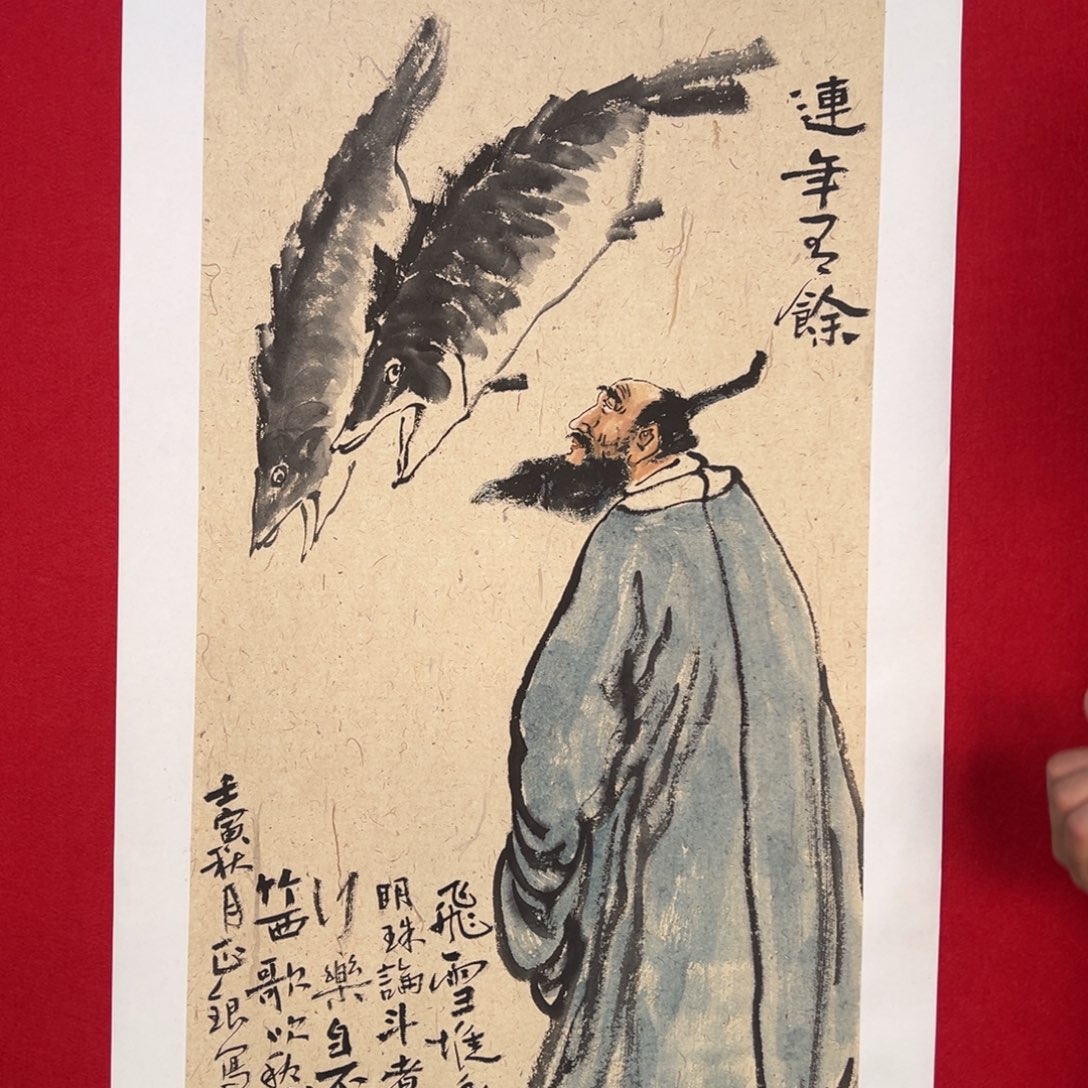 連年有餘
飛雪堆
明珠論斗煮
行樂自不
竹西歌吹
壬寅秋月正銀寫